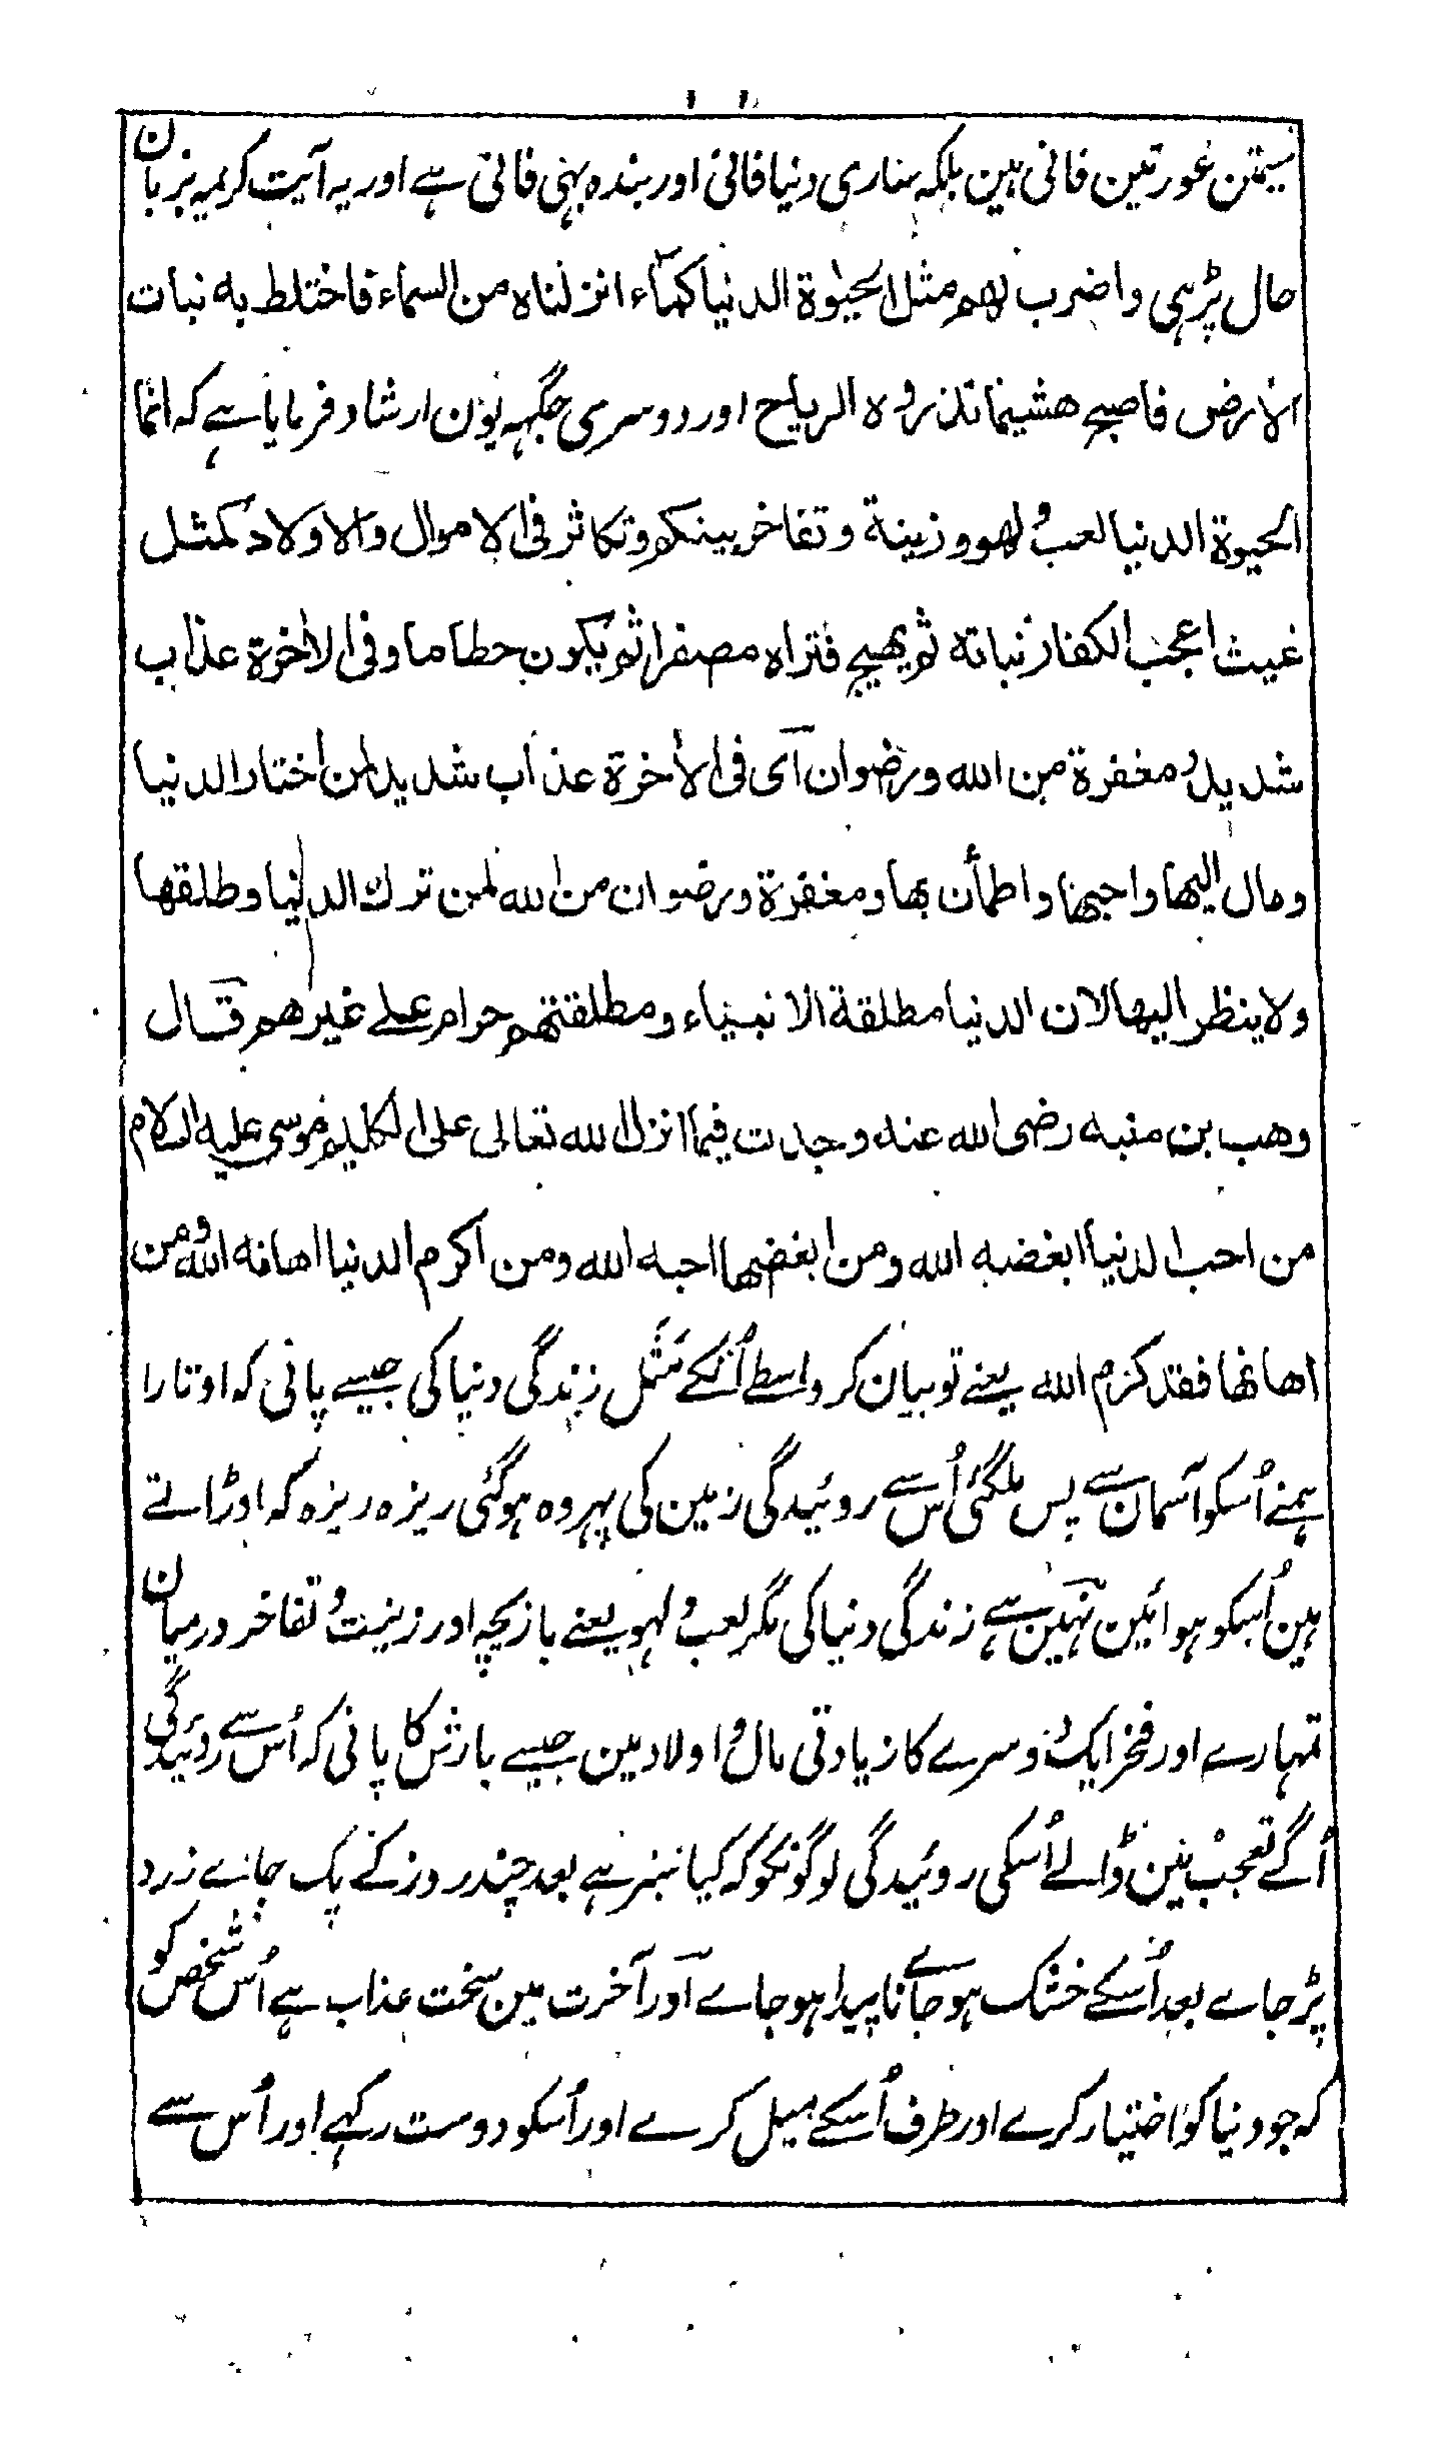 سیمتن عورتین فانی ہین بلکہ ساری دنیا فانی اور بندہ بہی فانی ہے اور یہ آیت کریمہ بزبان
حال پڑہی واضرب لهم مثل الحیٰوة الدنیا کمآء انزلناه من السماء فاختلط به نبات
الارض فاصبح هشیما تذروه الریاح اور دوسری جگہہ یون ارشاد فرمایا ہے کہ انما
الحیوة الدنیا لعب و لهو و زینة و تفاخر بینکم و تکاثر فی الاموال والاولاد کمثل
غیث اعجب الکفار نباته ثم یهیج فتراه مصفرا ثم یکون حطاما و فی الاخرة عذاب
شدید و مغفرة من الله و رضوان آی فی الاخرة عذاب شدید لمن اختار الدنیا
و مال الیها و احبها و اطمأن بها و مغفرة و رضوان من الله لمن ترك الدنیا و طلقها
ولا ینظر الیها لان الدنیا مطلقة الانبیاء و مطلقتهم حرام علے غیرهم قال
وهب بن منبه رضی الله عنه وجدت فیما انزل الله تعالی علی الکلیم موسی علیه السلام
من احب الدنیا ابغضه الله ومن ابغضها احبه الله ومن اکرم الدنیا اهانه الله و من
اهانها فقد کرم الله یعنے تو بیان کر واسطے اُنکے مَثَل زندگی دنیا کی جیسے پانی کہ اوتارا
ہمنے اُسکو آسمان سے پس ملگئی اُس سے روئیدگی زمین کی پہر وہ ہوگئی ریزہ ریزہ کہ اوڑاتے
ہین اُسکو ہوائین نہین ہے زندگی دنیا کی مگر لعب و لہو یعنے بازیچہ اور زینت و تفاخر درمیان
تمہارے اور فخر ایک دوسرے کا زیادتی مال و اولاد مین جیسے بارش کا پانی کہ اُس سے روئیدگی
اُگے تعجب مین ڈالے اُسکی روئیدگی لوگونکو کہ کیا سبز ہے بعد چند روز کے پک جاے زرد
پڑ جاے بعد اُسکے خشک ہو جانے ناپیدا ہو جاے آور آخرت مین سخت عذاب ہے اُس شخص کو
کہ جو دنیا کو اختیار کرے اور طرف اُسکے میل کرے اور اُسکو دوست رکہے اور اُس سے